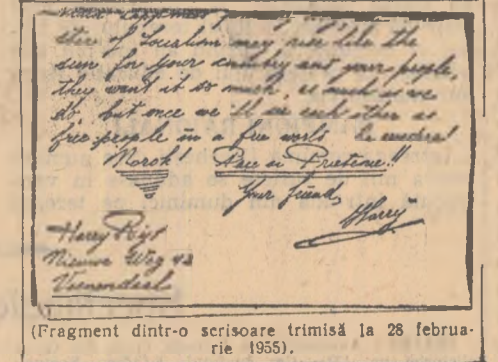 ster of Socialism may rise like the
sun for your country and your people,
they want it so much, as much as we
do, but once we'll see each other as
free people in a free world
Noroh Pace si Prietenie!!
Your friend,
"Harry"
Harry
Nieuwe Weg 43
Veenendaal
(Fragment dintr-o scrisoare trimisă la 28 februa-
rie 1955).